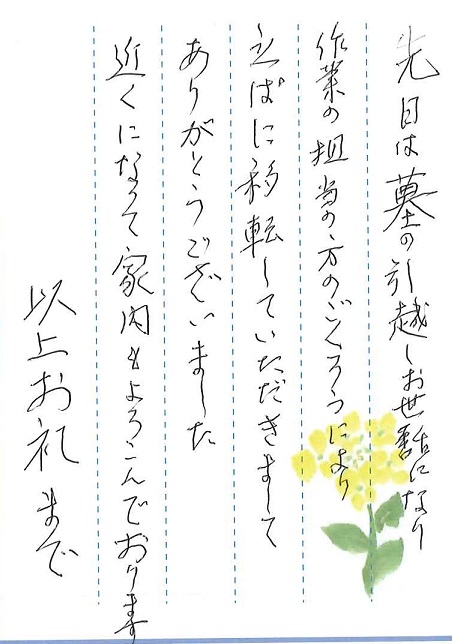 先日は墓の引越しお世話になり
作業の担当の方のごくろうにより
立ぱに移転していただきまして
ありがとうございました
近くになって家内もよろこんでおります
以上お礼まで